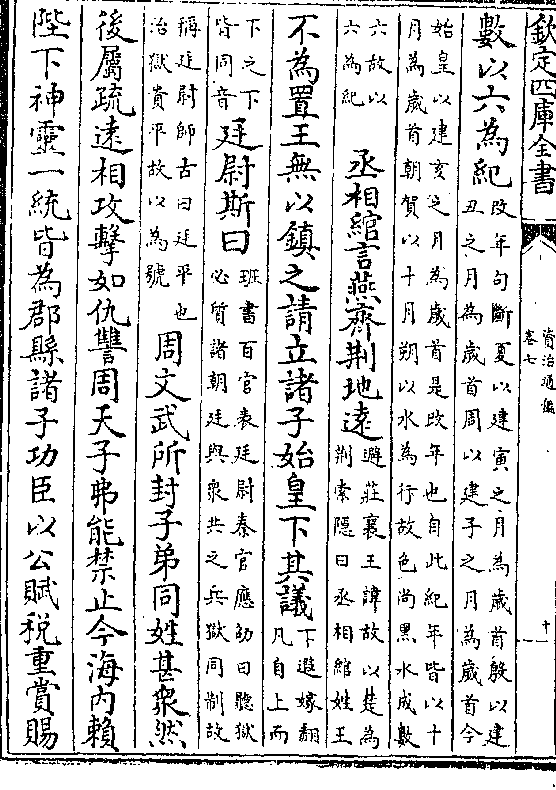 欽定四庫全書
資治通鑑
卷七
十一
數以六為紀
改年句斷夏以建寅之月為歲首殷以建
丑之月為歲首周以建子之月為歲首今
始皇以建亥之月為歲首是改年也自此紀年皆以十
月為歲首朝賀以十月朔以水為行故色尚黑水成數
六故以
六為紀
丞相綰言燕齊荆地遠
避莊襄王諱故以楚為
荆索隱曰丞相綰姓王
不為置王無以鎮之請立諸子始皇下其議
下遐嫁翻
凡自上而
下之下
皆同音
廷尉斯曰
班書百官表廷尉秦官應劭曰聽獄
必質諸朝廷與衆共之兵獄同制故
稱廷尉師古曰廷平也
治獄貴平故以為號
周文武所封子弟同姓甚衆然
後屬疏遠相攻擊如仇讐周天子弗能禁止今海内賴
陛下神靈一統皆為郡縣諸子功臣以公賦税重賞賜